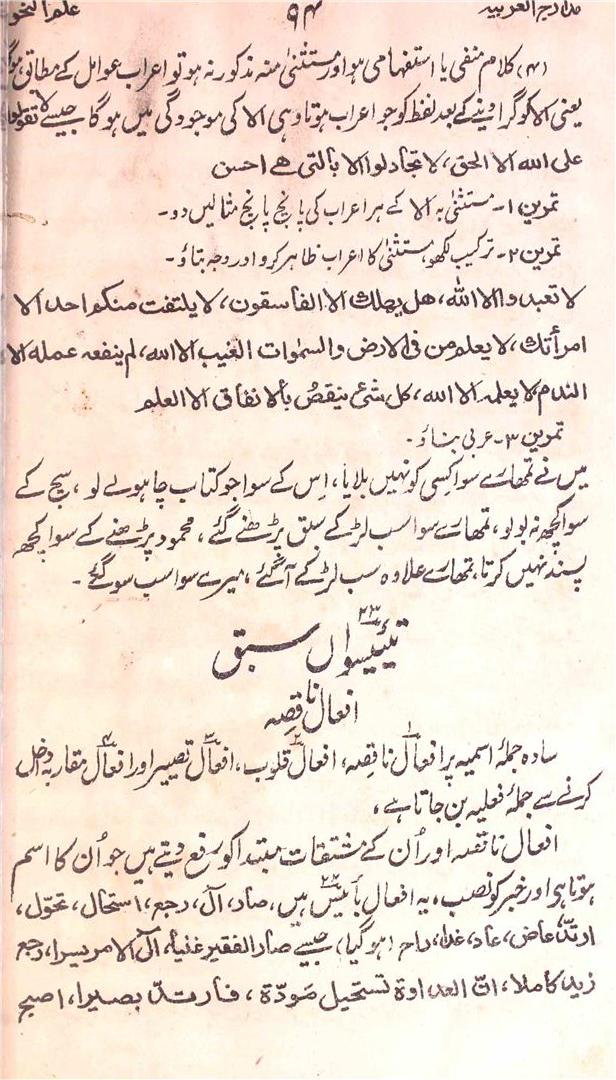 مدارج العربیہ ۹۴ علم النحو
(۴) کلام منفی یا استفہامی ہو اور مستثنیٰ منہ مذکور نہ ہو تو اعراب عوامل کے مطابق ہوگا
یعنی الا کو گرا دینے کے بعد لفظ کو جو اعراب ہوتا وہی الا کی موجودگی میں ہوگا جیسے لا تقولوا
علی اللہ الا الحق، لا تجادلوا الا بالتی ھے احسن
تمرین ۱۔ مستثنیٰ بہ الا کے ہر اعراب کی پانچ پانچ مثالیں دو۔
تمرین ۲۔ ترکیب لکھو، مستثنیٰ کا اعراب ظاہر کرو اور وجہ بتاؤ۔
لا تعبدوا الا اللہ، ھل یھلك الا الفاسقون، لا یلتفت منکم احد الا
امرأتك، لا یعلم من فی الارض والسمٰوات الغیب الا اللہ، لم ینفعہ عملہ الا
الندم، لا یعلمہ الا اللہ، کل شئ ینقصُ بألانفاق الا العلم
تمرین ۳۔ عربی بناؤ۔
میں نے تمھارے سوا کسی کو نہیں بلایا، اِس کے سوا جو کتاب چاہو لے لو، سچ کے
سوا کچھ نہ بولو، تمھارے سوا سب لڑکے سبق پڑھنے گئے، محمود پڑھنے کے سوا کچھ
پسند نہیں کرتا، تمھارے علاوہ سب لڑکے آگئے، میرے سوا سب سو گئے۔
۲۳
تئیسواں سبق
افعال ناقِصہ
سادہ جملۂ اسمیہ پر افعال۱ ناقِصہ، افعال۲ قلوب، افعال۳ تصییر اور افعال۴ مقاربہ داخل
کرنے سے جملۂ فعلیہ بن جاتا ہے،
افعال ناقصہ اور اُن کے مشتقات مبتدا کو رفع دیتے ہیں جو اُن کا اسم
ہوتا ہی اور خبر کو نصب، یہ افعال بائیس۲۲ ہیں، صاد، آلَ، رجع، استحال، تحوّل،
ارتدّ، عاض، عاد، غدا، راح (ہو گیا) جیسے صار الفقیر غنیاً، آلَ الامر یسرا، رجع
زید کاملا، انّ العداوة تستحیل مَودّة، فارتدّ بصیرا، اصبح